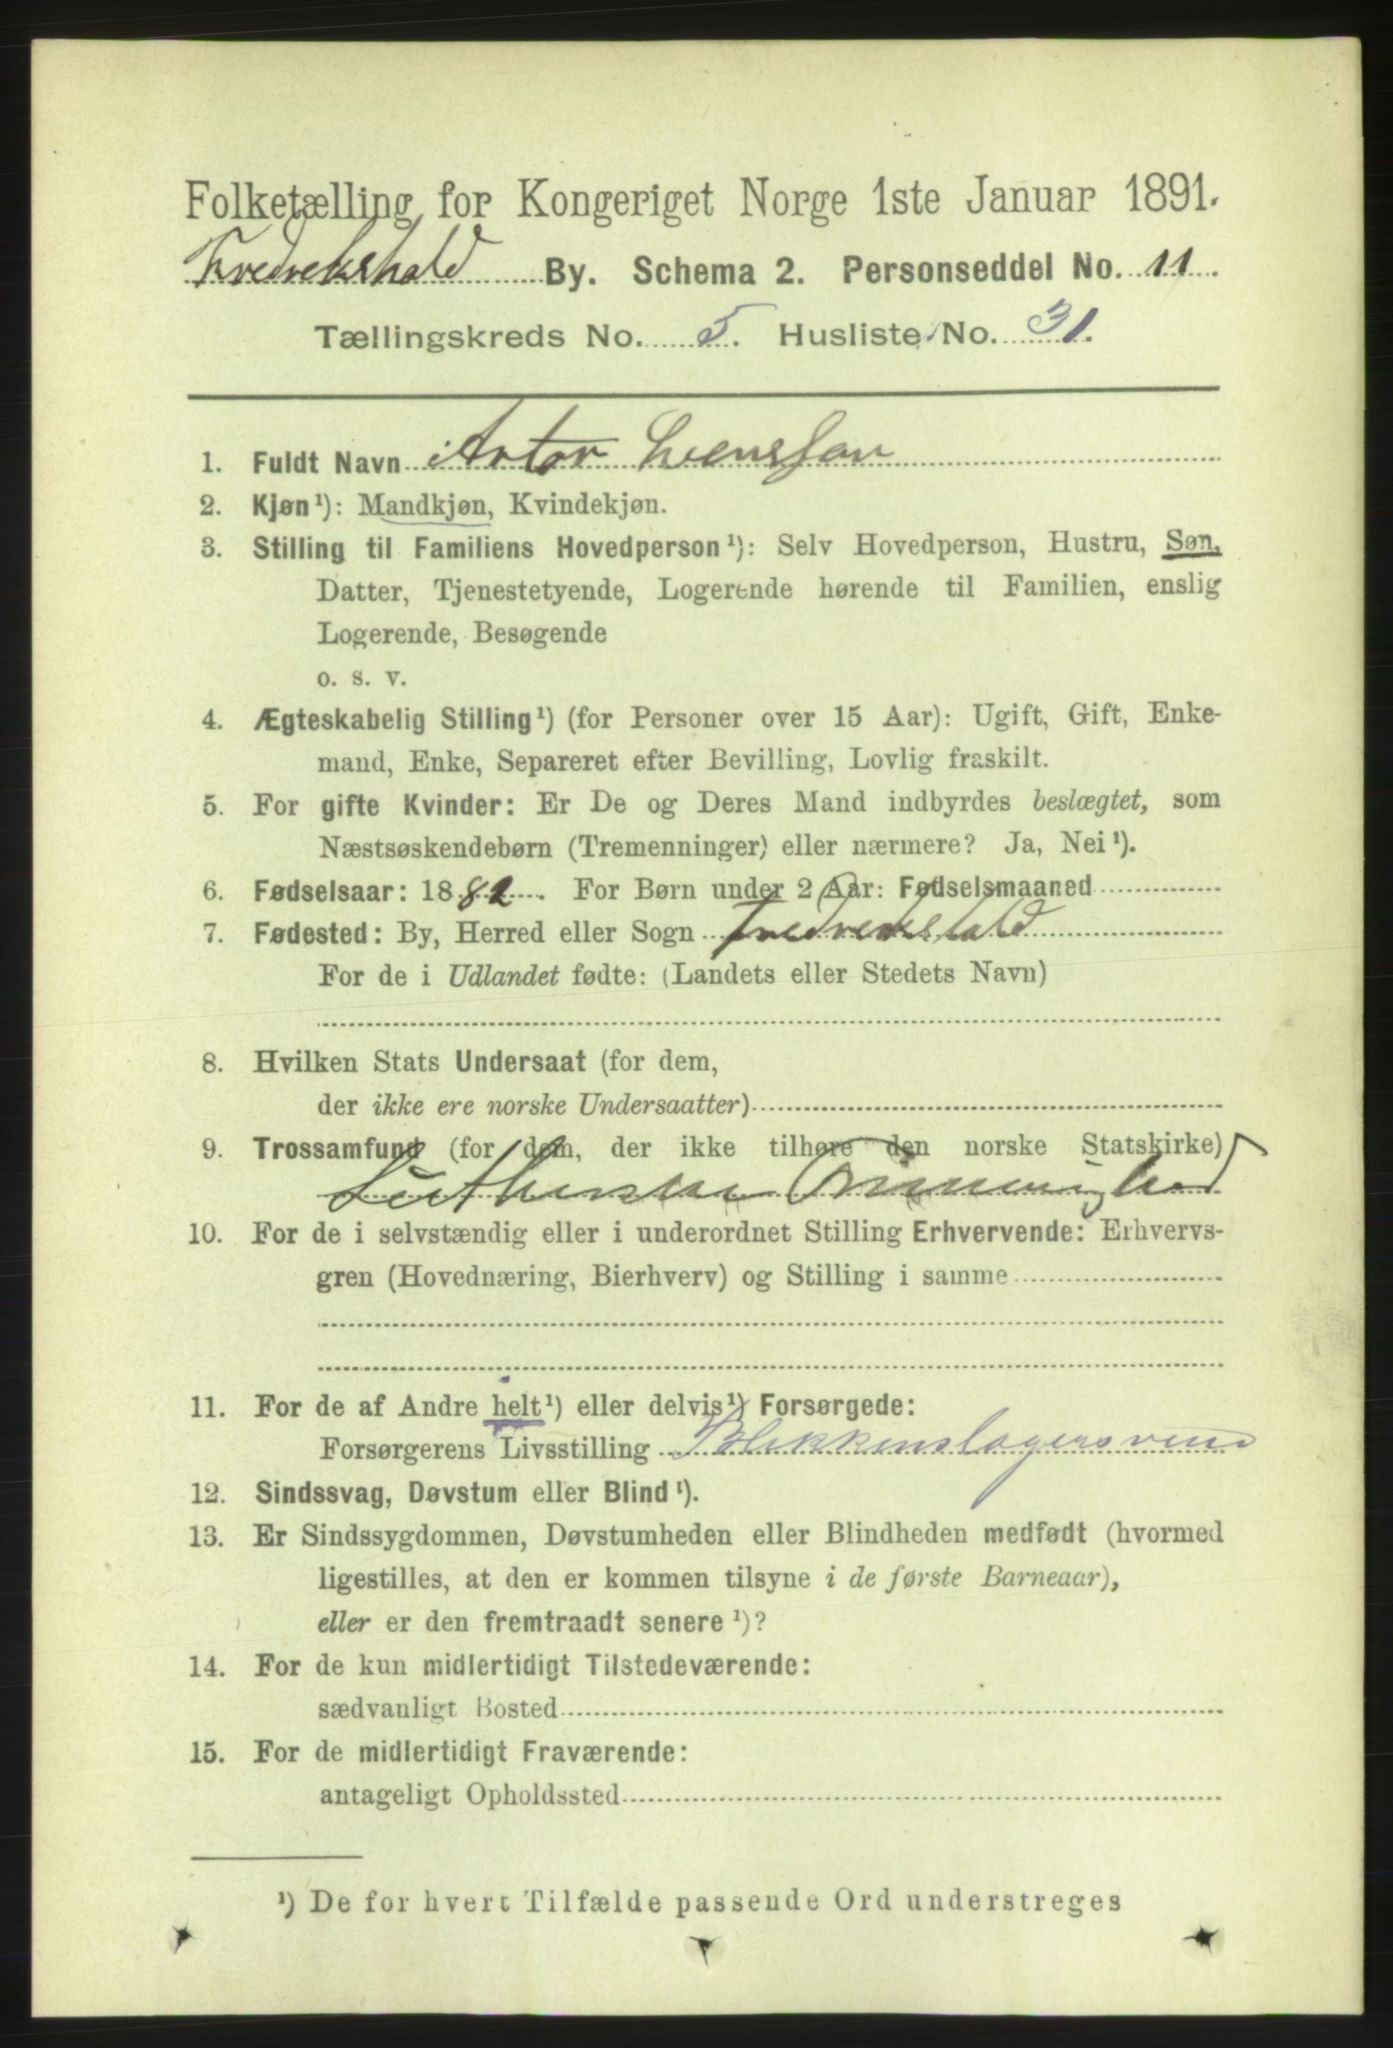 Folketælling for Kongeriget Norge 1ste Januar 1891.
Fredrekshald By. Schema 2. Personseddel No. 11.
Tællingskreds No. 5. Husliste No. 31.
1. Fuldt Navn Artor Svenssen
2. Kjøn¹): Mandkjøn, Kvindekjøn.
3. Stilling til Familiens Hovedperson¹): Selv Hovedperson, Hustru, Søn,
Datter, Tjenestetyende, Logerende hørende til Familien, enslig
Logerende, Besøgende
o. s. v.
4. Ægteskabelig Stilling¹) (for Personer over 15 Aar): Ugift, Gift, Enke-
mand, Enke, Separeret efter Bevilling, Lovlig fraskilt.
5. For gifte Kvinder: Er De og Deres Mand indbyrdes beslægtet, som
Næstsøskendebørn (Tremenninger) eller nærmere? Ja, Nei¹).
6. Fødselsaar: 1882. For Børn under 2 Aar: Fødselsmaaned
7. Fødested: By, Herred eller Sogn Fredrekshald
For de i Udlandet fødte: (Landets eller Stedets Navn)
8. Hvilken Stats Undersaat (for dem,
der ikke ere norske Undersaatter)
9. Trossamfund (for dem, der ikke tilhøre den norske Statskirke)
10. For de i selvstændig eller i underordnet Stilling Erhvervende: Erhvervs-
gren (Hovednæring, Bierhverv) og Stilling i samme
11. For de af Andre helt¹) eller delvis¹) Forsørgede:
Forsørgerens Livsstilling Blikkenslagersvend
12. Sindssvag, Døvstum eller Blind¹).
13. Er Sindssygdommen, Døvstumheden eller Blindheden medfødt (hvormed
ligestilles, at den er kommen tilsyne i de første Barneaar),
eller er den fremtraadt senere¹)?
14. For de kun midlertidigt Tilstedeværende:
sædvanligt Bosted
15. For de midlertidigt Fraværende:
antageligt Opholdssted
¹) De for hvert Tilfælde passende Ord understreges